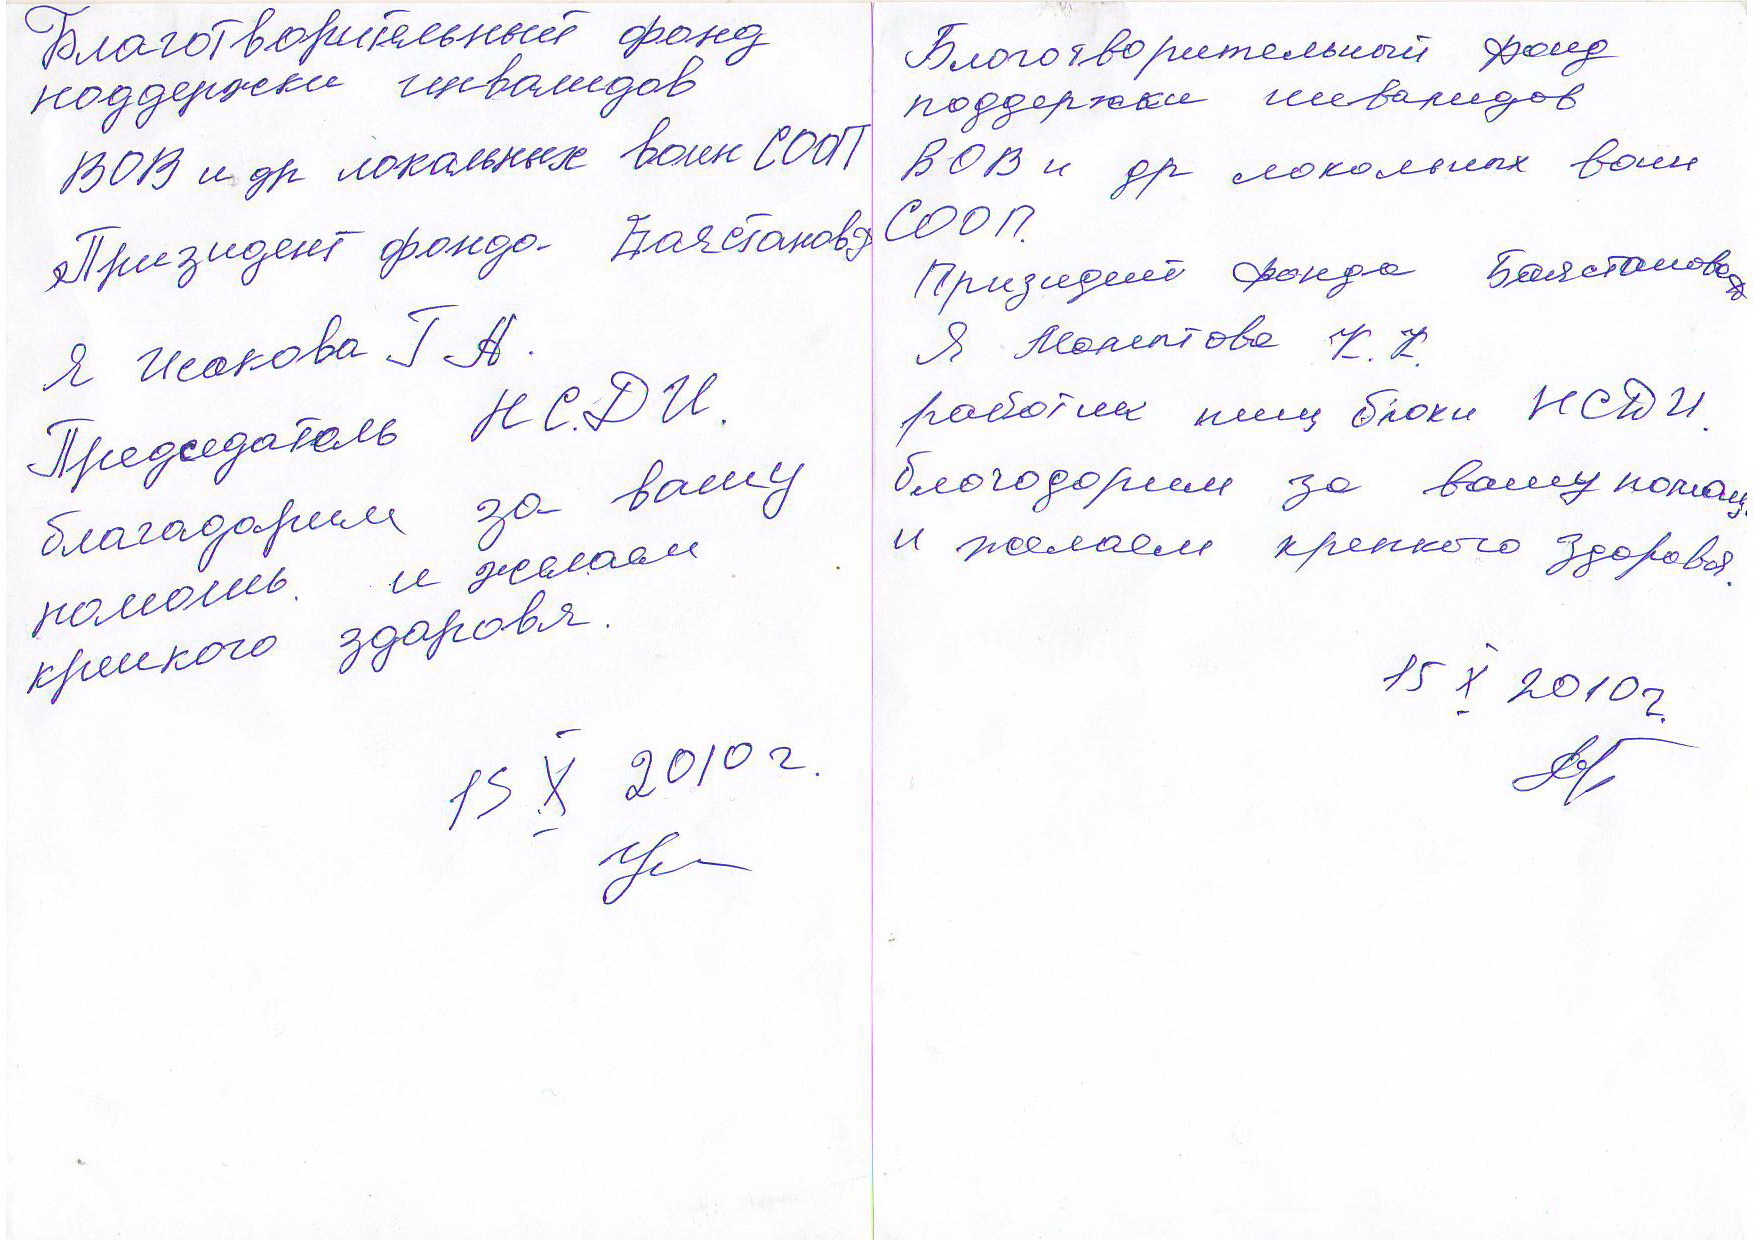 Благотворительный фонд
поддержки инвалидов
ВОВ и др локальных воин СООП
Призидент фонда Баястанова
Я Исакова Г А.
Председатель Н С.Д И.
благадарим за вашу
помошь. и желаем
крепкого здаровя.
15 X 2010 г.
Благотворительный фонд
поддержки инвалидов
ВОВ и др локольных воин
СООП.
Призидент фонда Баястанова
Я К. К.
работник пищ блоки НСДИ.
благодорим за вашу помощ.
и желаем крепкого здоровья.
15 X 2010 г.